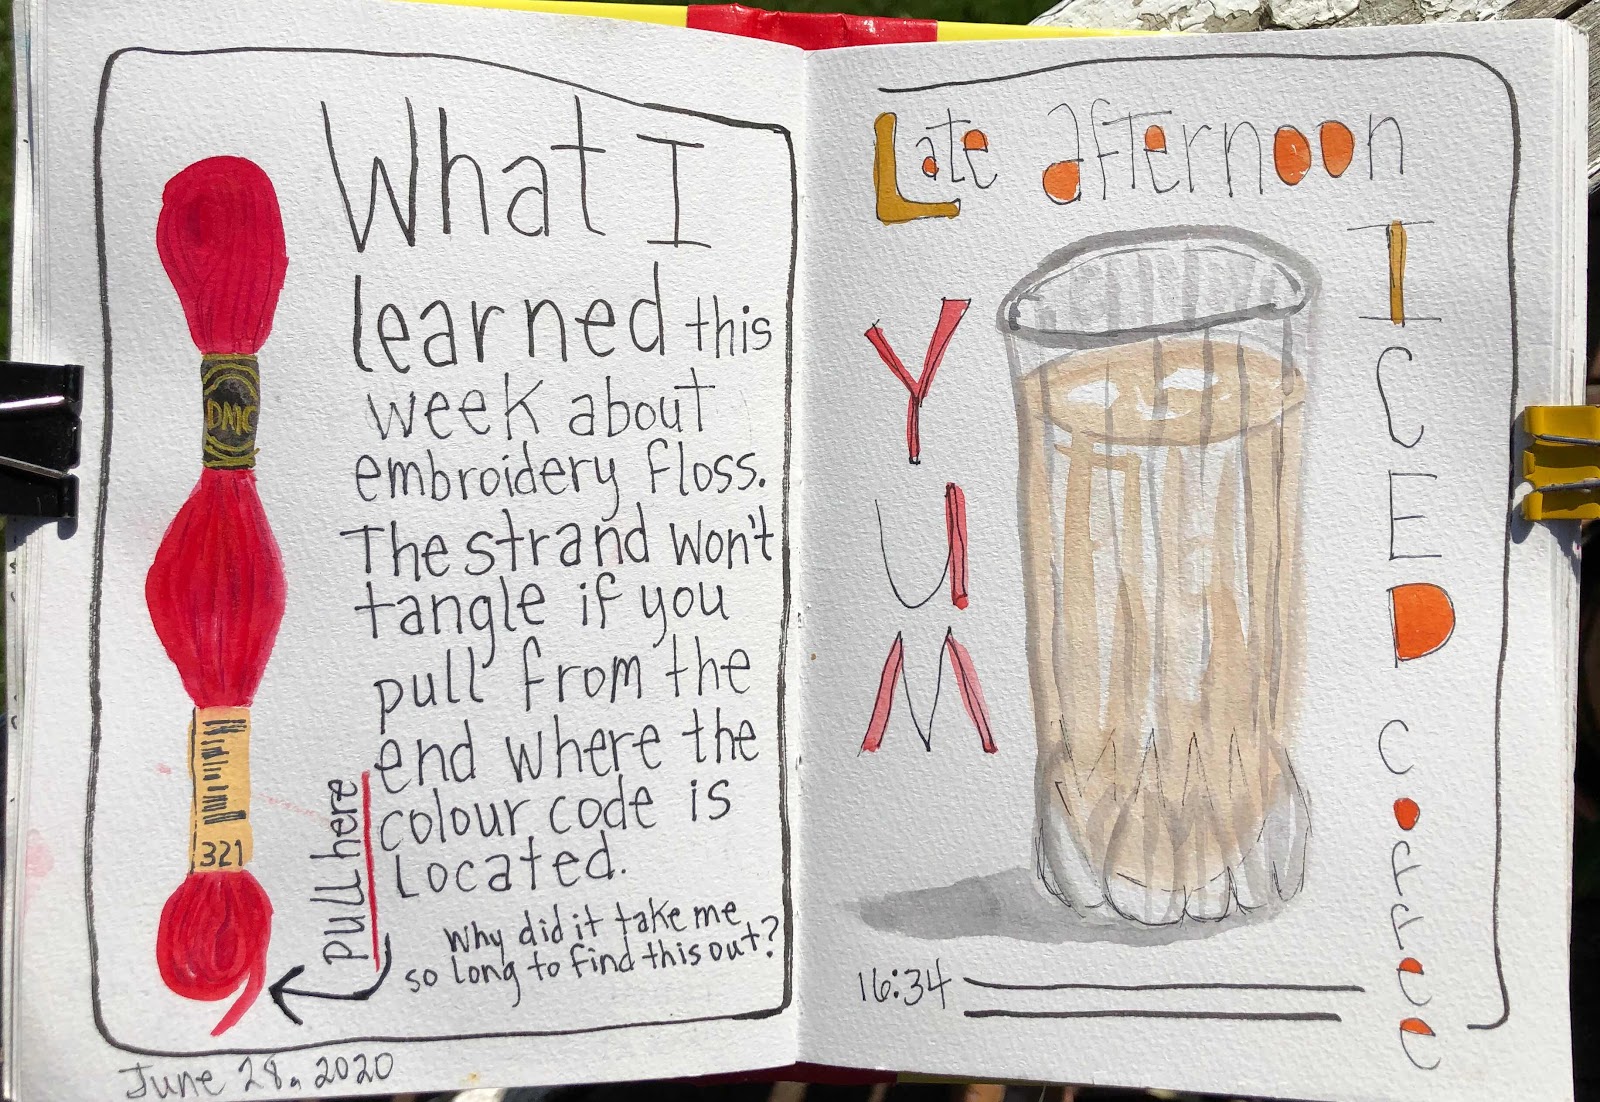 What I
learned this
week about
embroidery floss.
The strand won't
tangle if you
pull from the
end where the
colour code is
Located.
Why did it take me
so long to find this out?
pull here
DMC
321
June 28, 2020
Late afternoon
ICED
coffee
YUM
16:34